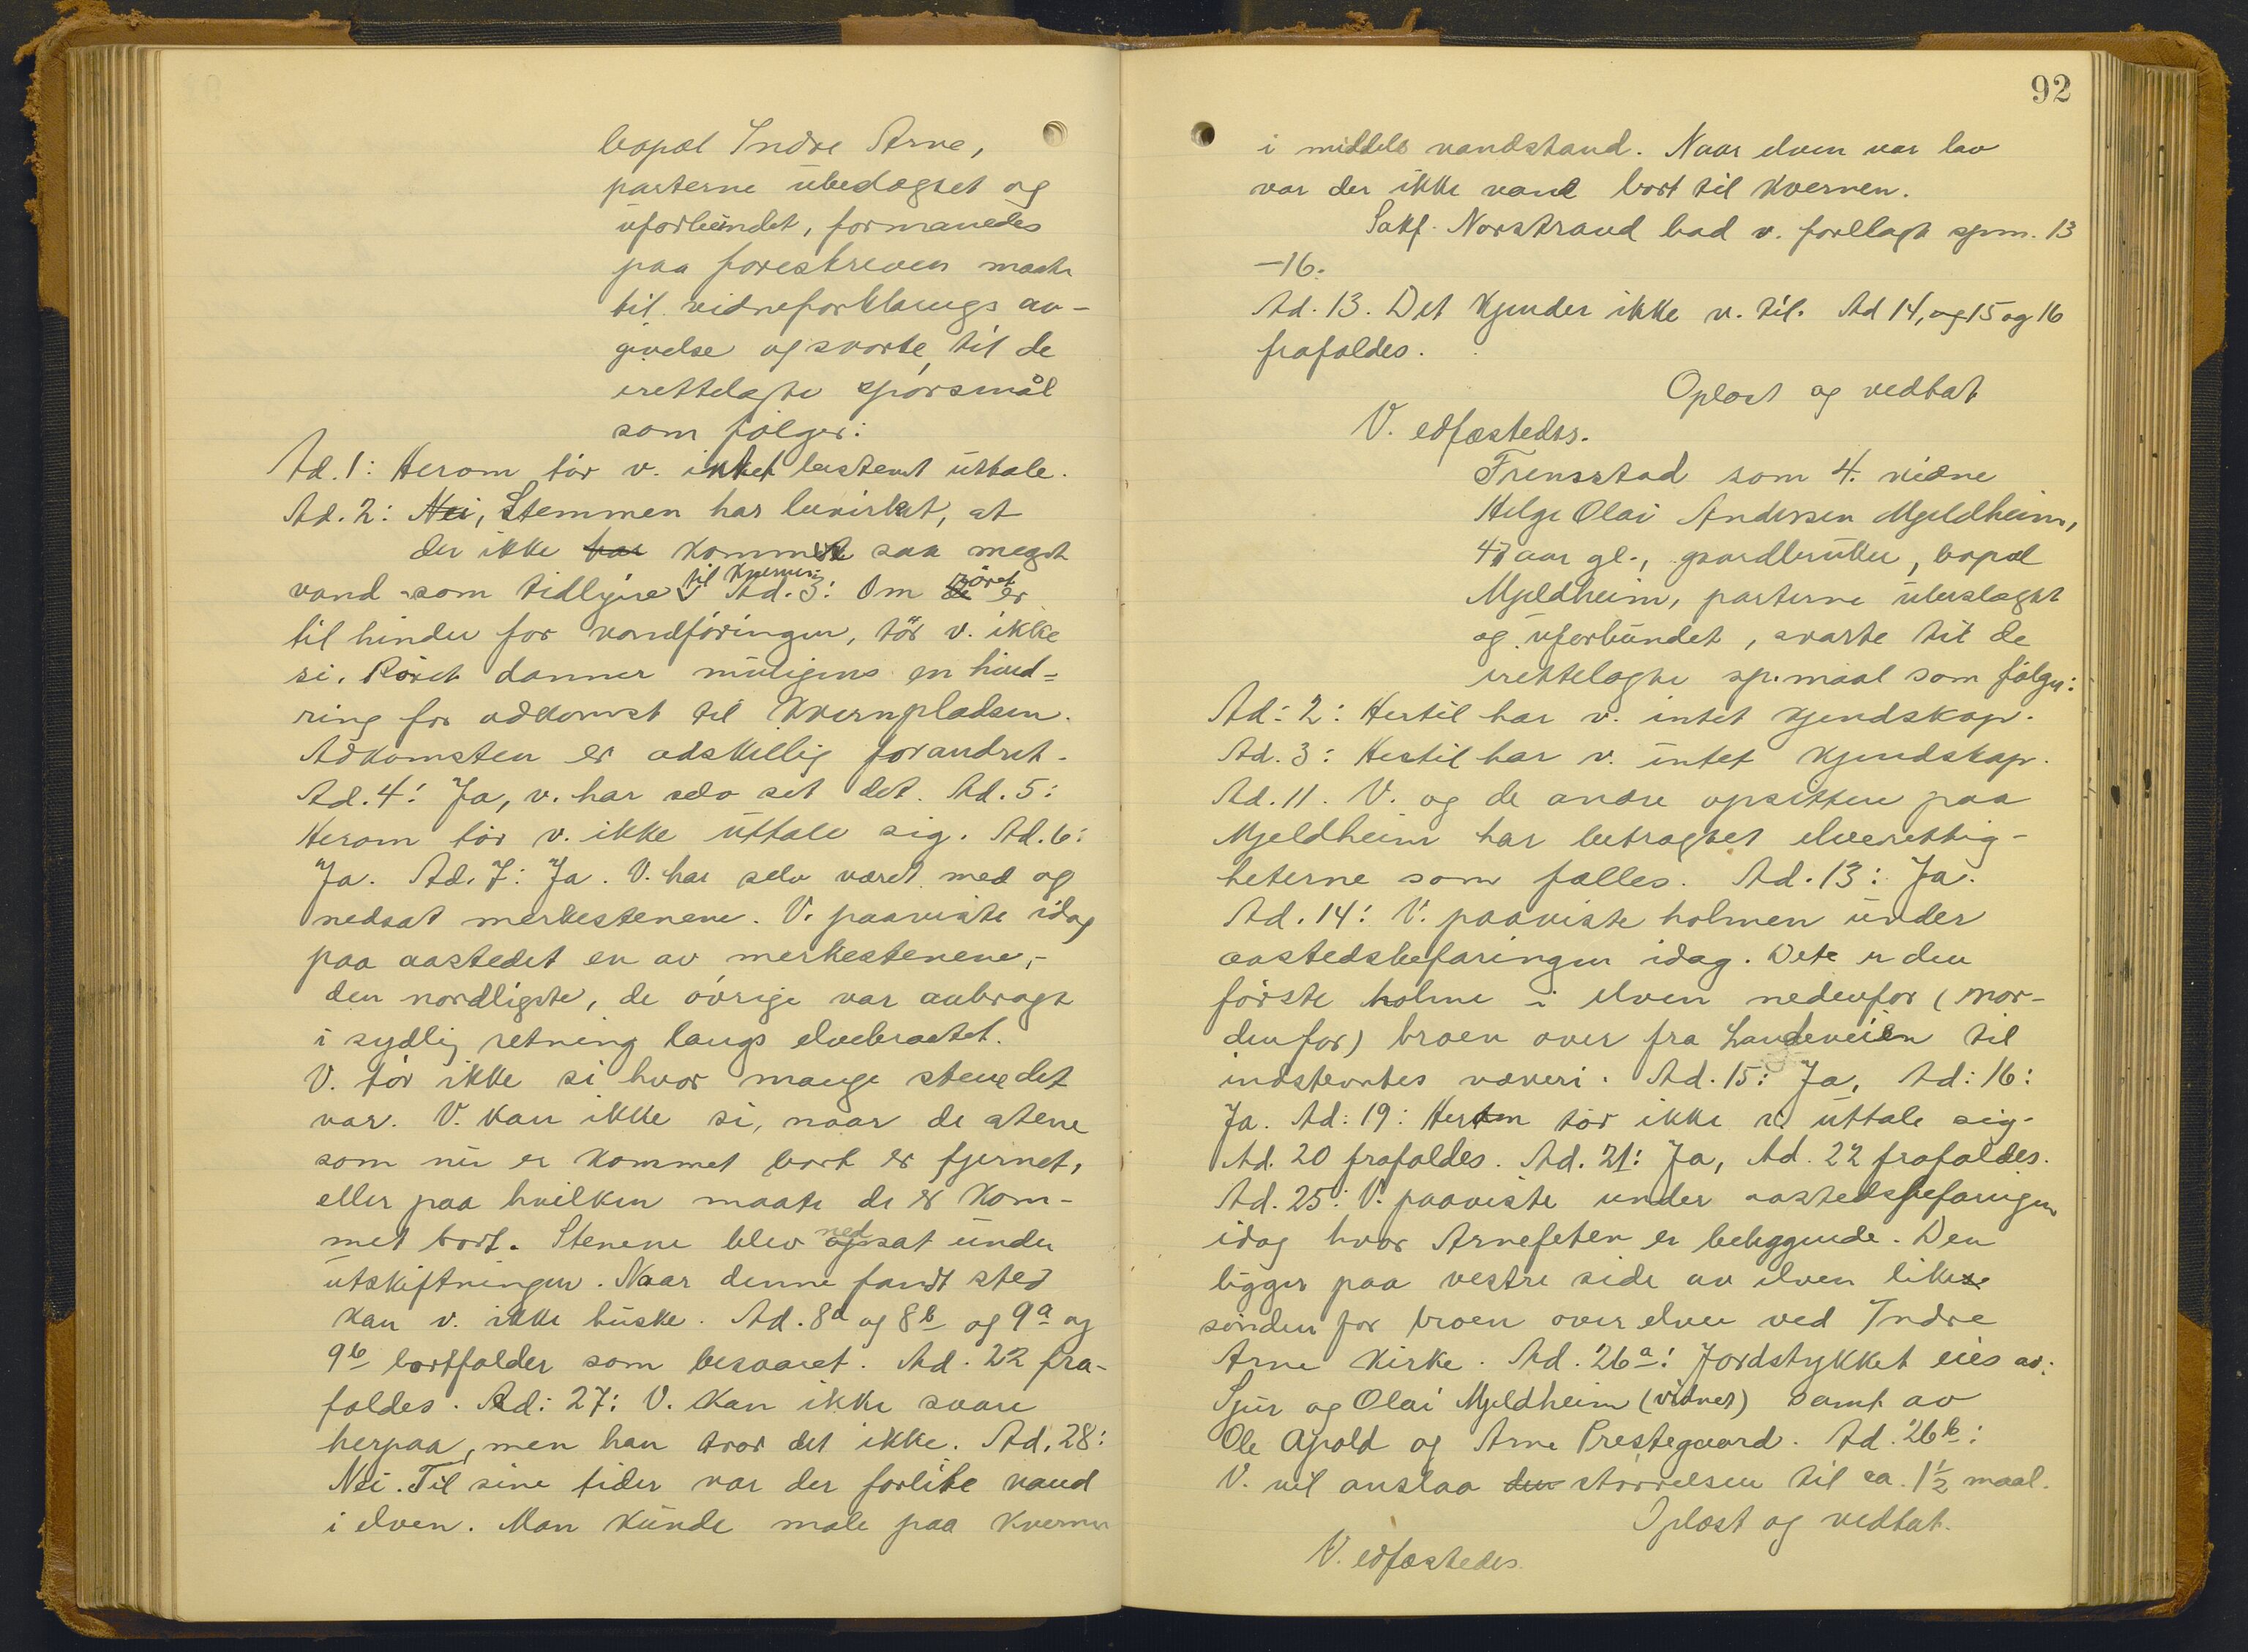 bopæl Indre Arne,
parterne ubeslægtet og
uforbundet, formanedes
paa foreskreven maate
til vidneforklarings av-
givelse og svarte til de
irettelagte spørsmål
som følger:
Ad. 1: Herom tør v. ikke bestemt uttale.
Ad. 2: Nei, Stemmen har bevirket, at
der ikke har kommet saa meget
vand som tidligere til kvernen. Ad. 3: Om røret er
til hinder for vandføringen, tør v. ikke
si. Røret danner muligens en hind-
ring for adkomst til Kvernpladsen.
Adkomsten er adskillig forandret.
Ad. 4: Ja, v. har selv set det. Ad. 5:
Herom tør v. ikke uttale sig. Ad. 6:
Ja. Ad. 7: Ja. V. har selv været med og
nedsat merkestenene. V. paaviste idag
paa aastedet en av merkestenene,-
den nordligste, de øvrige var anbragt
i sydlig retning langs elvebraatet.
V. tør ikke si hvor mange stene det
var. V. kan ikke si, naar de stene
som nu er kommet bort er fjernet,
eller paa hvilken maate de er kom-
met bort. Stenene blev nedsat under
utskiftningen. Naar denne fandt sted
kan v. ikke huske. Ad. 8a og 8b og 9a og
9b bortfalder som besvaret. Ad. 22 fra-
faldes. Ad: 27: V. kan ikke svare
herpaa, men han tror det ikke. Ad. 28:
Nei. Til sine tider var der forlite vand
i elven. Man kunde male paa kvernen
92
i middels vandstand. Naar elven var lav
var der ikke vand bort til kvernen.
Sakf. Norstrand bad v. forelagt spm. 13
-16.
Ad. 13. Det kjender ikke v. til. Ad 14, og 15 og 16
frafaldes.
Oplæst og vedtat
V. edfæstedes.
Fremstod som 4. vidne
Helge Olai Andersen Mjeldheim,
47 aar gl., gaardbruker, bopæl
Mjeldheim, parterne ubeslægtet
og uforbundet, svarte til de
irettelagte sp.maal som følger:
Ad: 2: Hertil har v. intet kjendskap.
Ad. 3: Hertil har v. intet kjendskap.
Ad. 11. V. og de andre opsittere paa
Mjeldheim har betragtet elverettig-
heterne som fælles. Ad. 13: Ja.
Ad. 14: V. paaviste holmen under
aastedsbefaringen idag. Dette er den
første holme i elven nedenfor (nor-
denfor) broen over fra Landeveien til
indstevntes væveri. Ad. 15: Ja. Ad: 16:
Ja. Ad: 19: Herom tør ikke v. uttale sig.
Ad. 20 frafaldes. Ad. 21: Ja, Ad. 22 frafaldes.
Ad. 25: V. paaviste under aastedsbefaringen
idag hvor Arnefeten er beliggende. Den
ligger paa vestre side av elven like
sønden for broen over elven ved Indre
Arne Kirke. Ad. 26a: Jordstykket eies av:
Sjur og Olai Mjeldheim (vidnet) samt av
Ole Apold og Arne Prestegaard. Ad. 26b:
V. vil anslaa den størrelsen til ca. 1½ maal.
Oplæst og vedtat.
V. edfæstedes.